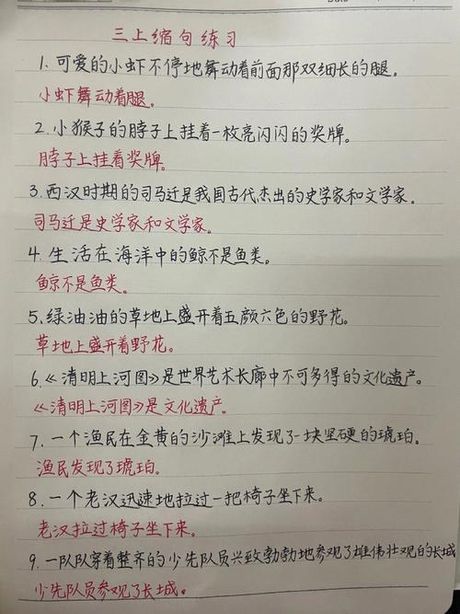 三上缩句练习
1. 可爱的小虾不停地舞动着前面那双细长的腿。
小虾舞动着腿。
2. 小猴子的脖子上挂着一枚亮闪闪的奖牌。
脖子上挂着奖牌。
3. 西汉时期的司马迁是我国古代杰出的史学家和文学家。
司马迁是史学家和文学家。
4. 生活在海洋中的鲸不是鱼类。
鲸不是鱼类。
5. 绿油油的草地上盛开着五颜六色的野花。
草地上盛开着野花。
6.《清明上河图》是世界艺术长廊中不可多得的文化遗产。
《清明上河图》是文化遗产。
7. 一个渔民在金黄的沙滩上发现了一块坚硬的琥珀。
渔民发现了琥珀。
8. 一个老汉迅速地拉过一把椅子坐下来。
老汉拉过椅子坐下来。
9. 一队队穿着整齐的少先队员兴致勃勃地参观了雄伟壮观的长城
少先队员参观了长城。